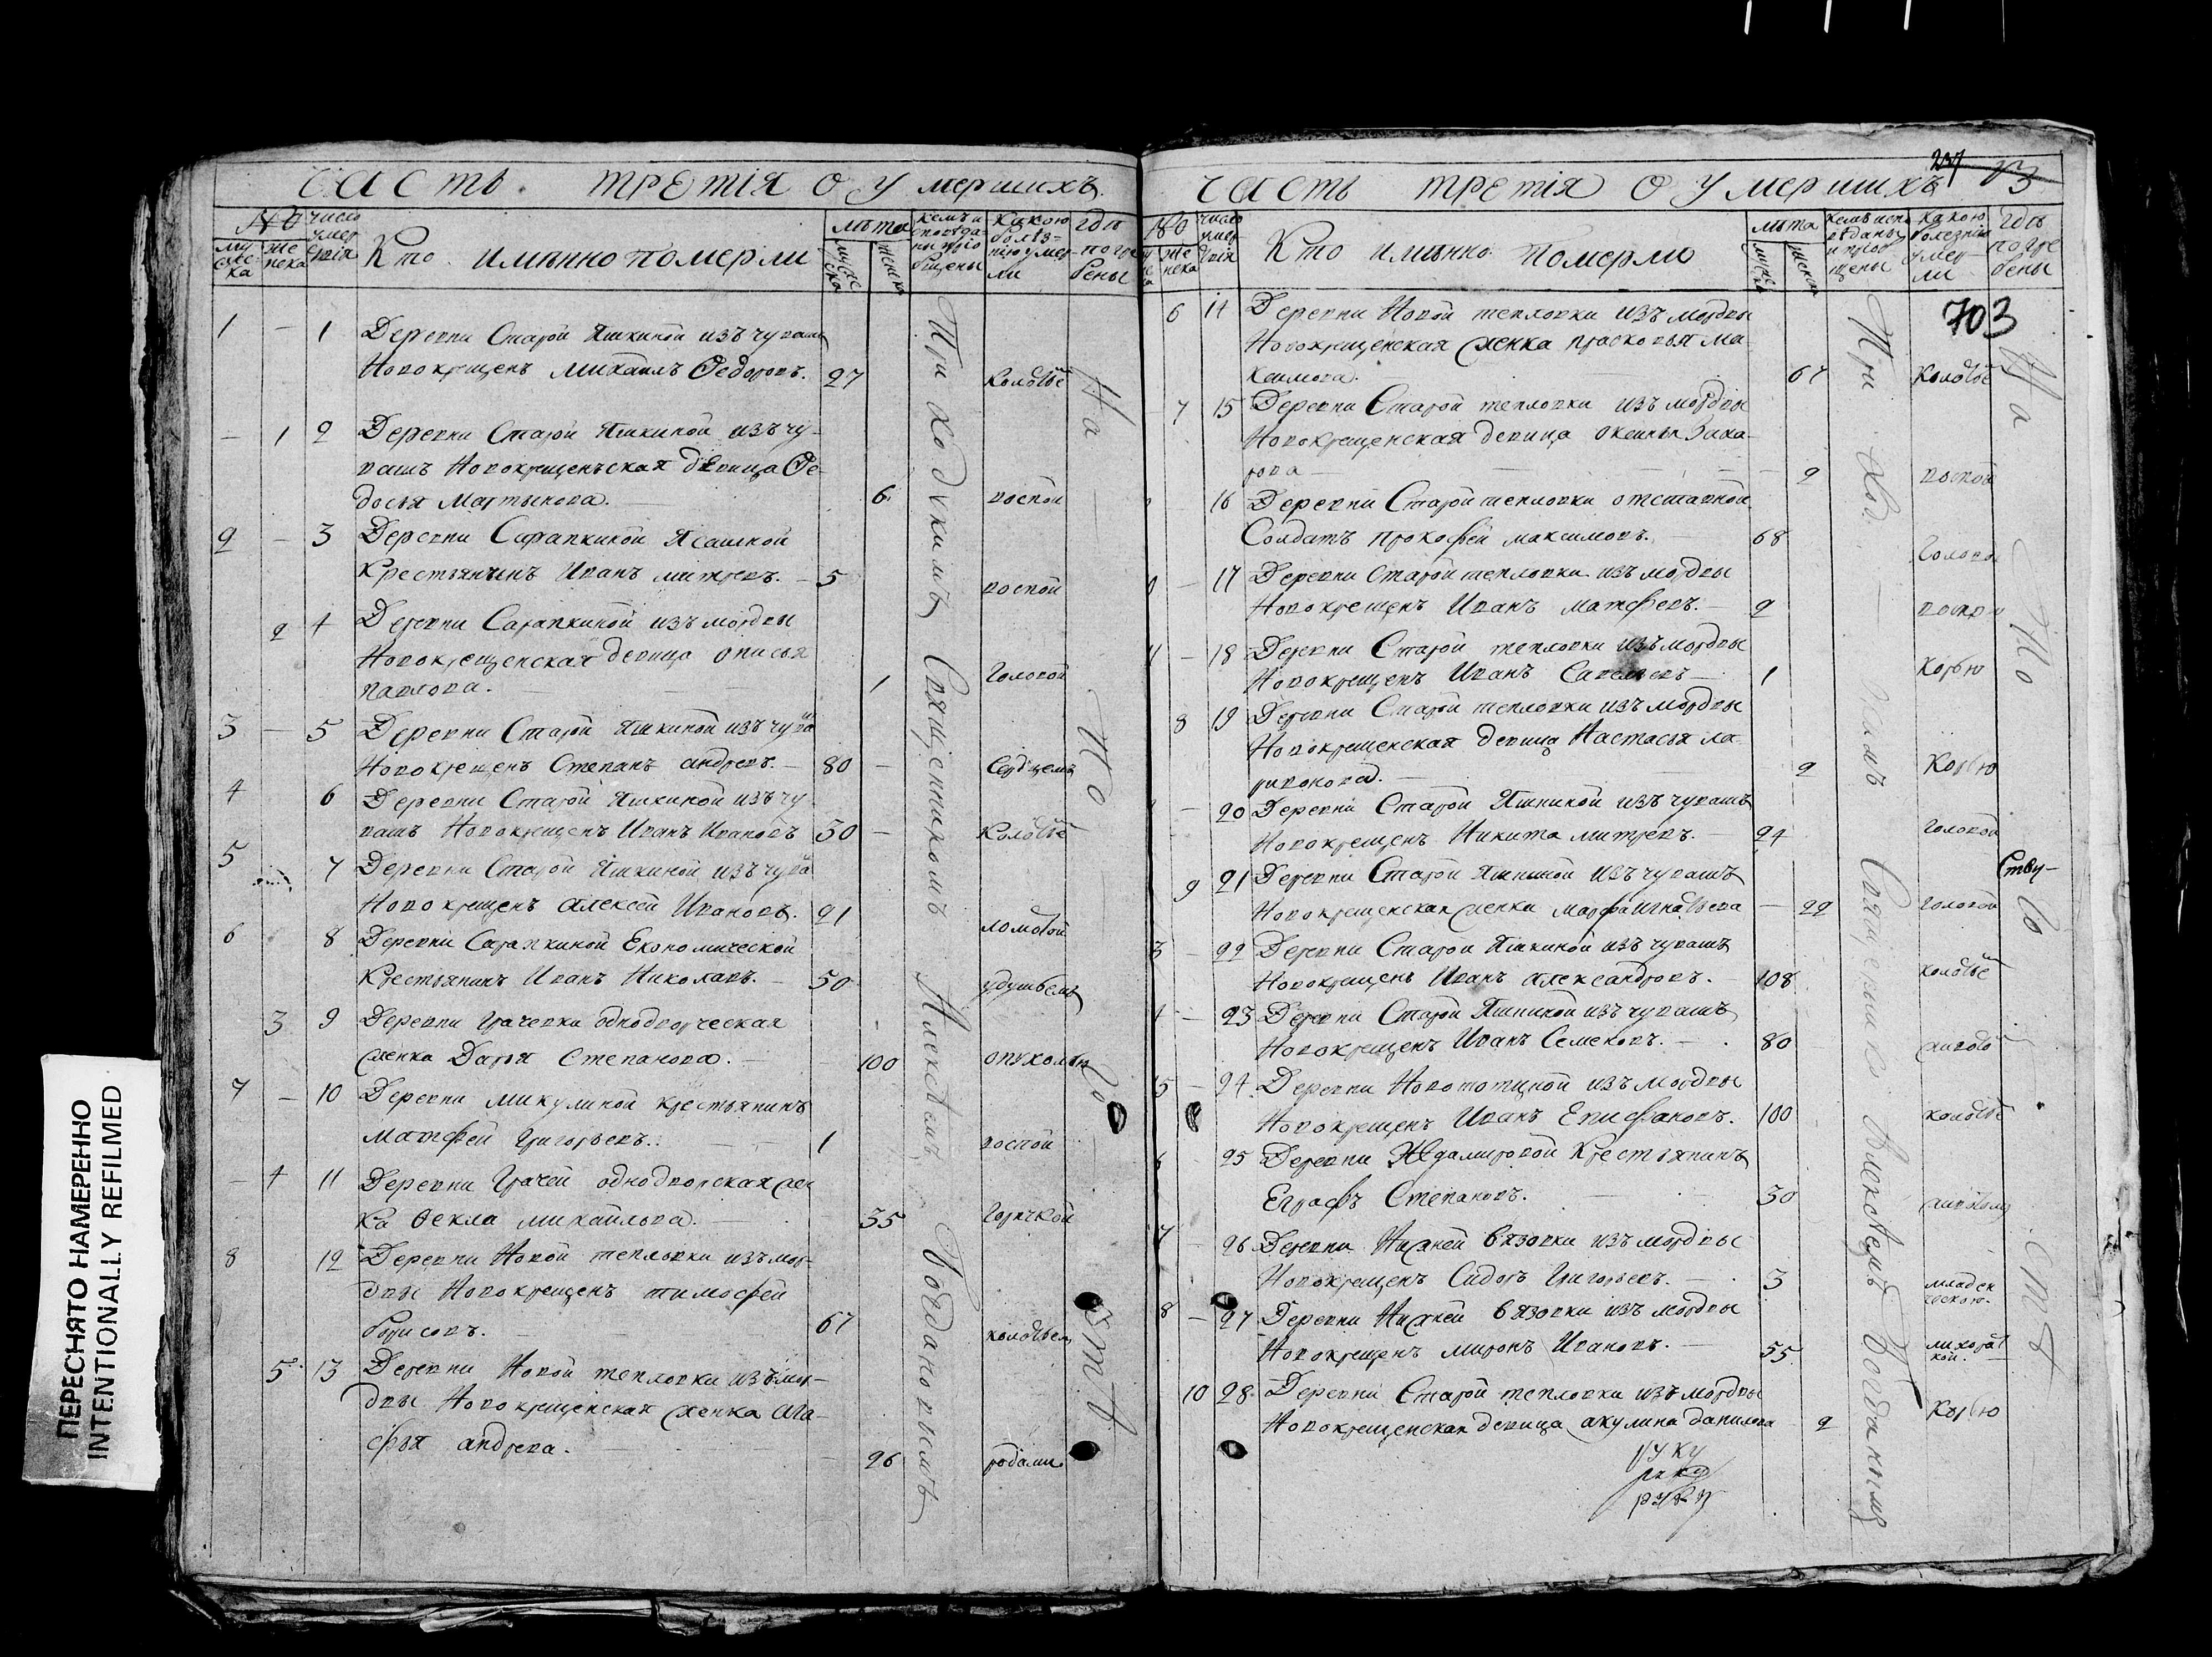 ЧАСТЬ ТРЕТІЯ О УМЕРШИХЪ
№ число умертвія
мужеска женска
Кто имянно померли
лѣта
мужеска женска
кемъ исповѣданы и приобщены
Какою болѣзнію умерли
гдѣ погребены
1 – 1 Деревни Старой Яшкиной изъ чувашъ
Новокрещенъ Михаилъ Федоровъ. 27 колотьё
– 1 2 Деревни Старой Яшкиной изъ чу-
вашъ Новокрещенъская дѣвица Фе-
досья Мартынова. 6 воспой
2 – 3 Деревни Сарапкиной Ясашной
Крестьянинъ Иванъ митревъ. – 5 воспой
2 4 Деревни Сарапкиной изъ мордвы
Новокрещенская девица
павлова. 1 головой
3 – 5 Деревни Старой Яшкиной изъ чува
Новокрещенъ Степанъ андревъ. – 80 – Сердцемъ
4 6 Деревни Старой Яшкиной изъ чу-
вашъ Новокрещенъ Иванъ Ивановъ 50 – Колотьё
5 7 Деревни Старой Яшкиной изъ чува
Новокрещенъ алексей Ивановъ. 21 ломотой
6 8 Деревни Сарапкиной Економической
Крестьянинъ Иванъ Николаевъ. – 50 удушьемъ
3 9 Деревни грачевки однодворческая
женка Дарья Степанова. 100 опухолью
7 – 10 Деревни микулиной крестьянинъ
Матфей григорьевъ. 1 воспой
– 4 11 Деревни Грачей однодворская жен
ка Фекла михайлова. 35 горячкой
8 12 Деревни Новой тепловки изъ мор-
двы Новокрещенъ тимофей
борисовъ. 67 колотьем
5 13 Деревни Новой тепловки изъ мор-
двы Новокрещенская женка ага-
фья андрева. 26 родами
Приходскимъ Священникомъ Алексѣемъ Богдановымъ
На
По
го
стѣ
ЧАСТЬ ТРЕТІЯ О УМЕРШИХЪ
237
703
№ число умертвія
женска
Кто имянно померло
лѣта
мужеска женска
кемъ исповѣданы и приобщены
какою болезнію умерли
гдѣ погребены
6 14 Деревни Новой тепловки изъ мордвы
Новокрещенская женка прасковья ма
ксимова. 67 колотьё
7 15 Деревни Старой тепловки изъ мордвы
Новокрещенская девица оксинья Заха-
рова – 2 воспой
16 Деревни Старой тепловки отставной
Солдатъ прокофей максимовъ. 68 голово
– 17 Деревни Старой тепловки изъ мордвы
Новокрещенъ Иванъ матфевъ. – 2
– 18 Деревни Старой тепловки изъ мордвы
Новокрещенъ Иванъ Савельевъ – 1 Корью
8 19 Деревни Старой тепловки изъ мордвы
Новокрещенская девица Настасья ла
ривонова. 2 Корью
– 20 Деревни Старой Яшкиной изъ чувашъ
Новокрещенъ Никита митревъ. 24 головой
9 21 Деревни Старой Яшкиной изъ чувашъ
Новокрещенская женка марфа игнатьева – 22 головой
3 – 22 Деревни Старой Яшкиной изъ чувашъ
Новокрещенъ Иванъ александровъ. 108 колотьё
– 23 Деревни Старой Яшкиной изъ чувашъ
Новокрещенъ Иванъ Семеновъ. – 80 животó
5 – 24 Деревни изъ мордвы
Новокрещенъ Иванъ Епифановъ. 100 колотьё
– 25 Деревни Ждамировой Крестьянинъ
Еграфъ Степановъ. 30 животомъ
7 – 26 Деревни Нижней вязовки изъ мордвы
Новокрещенъ Сидоръ григорьевъ. – 3 младен
ческою.
8 – 27 Деревни Нижней вязовки изъ мордвы
Новокрещенъ миронъ Ивановъ. – 55 лихорат
кой.
10 28 Деревни Старой тепловки изъ мордвы
Новокрещенская девица акулина данилова 2 Корью
Приход – скимъ Священнико Алексѣемъ Богдановымъ
На
По
го
стѣ
ПЕРЕСНЯТО НАМЕРЕННО
INTENTIONALLY REFILMED